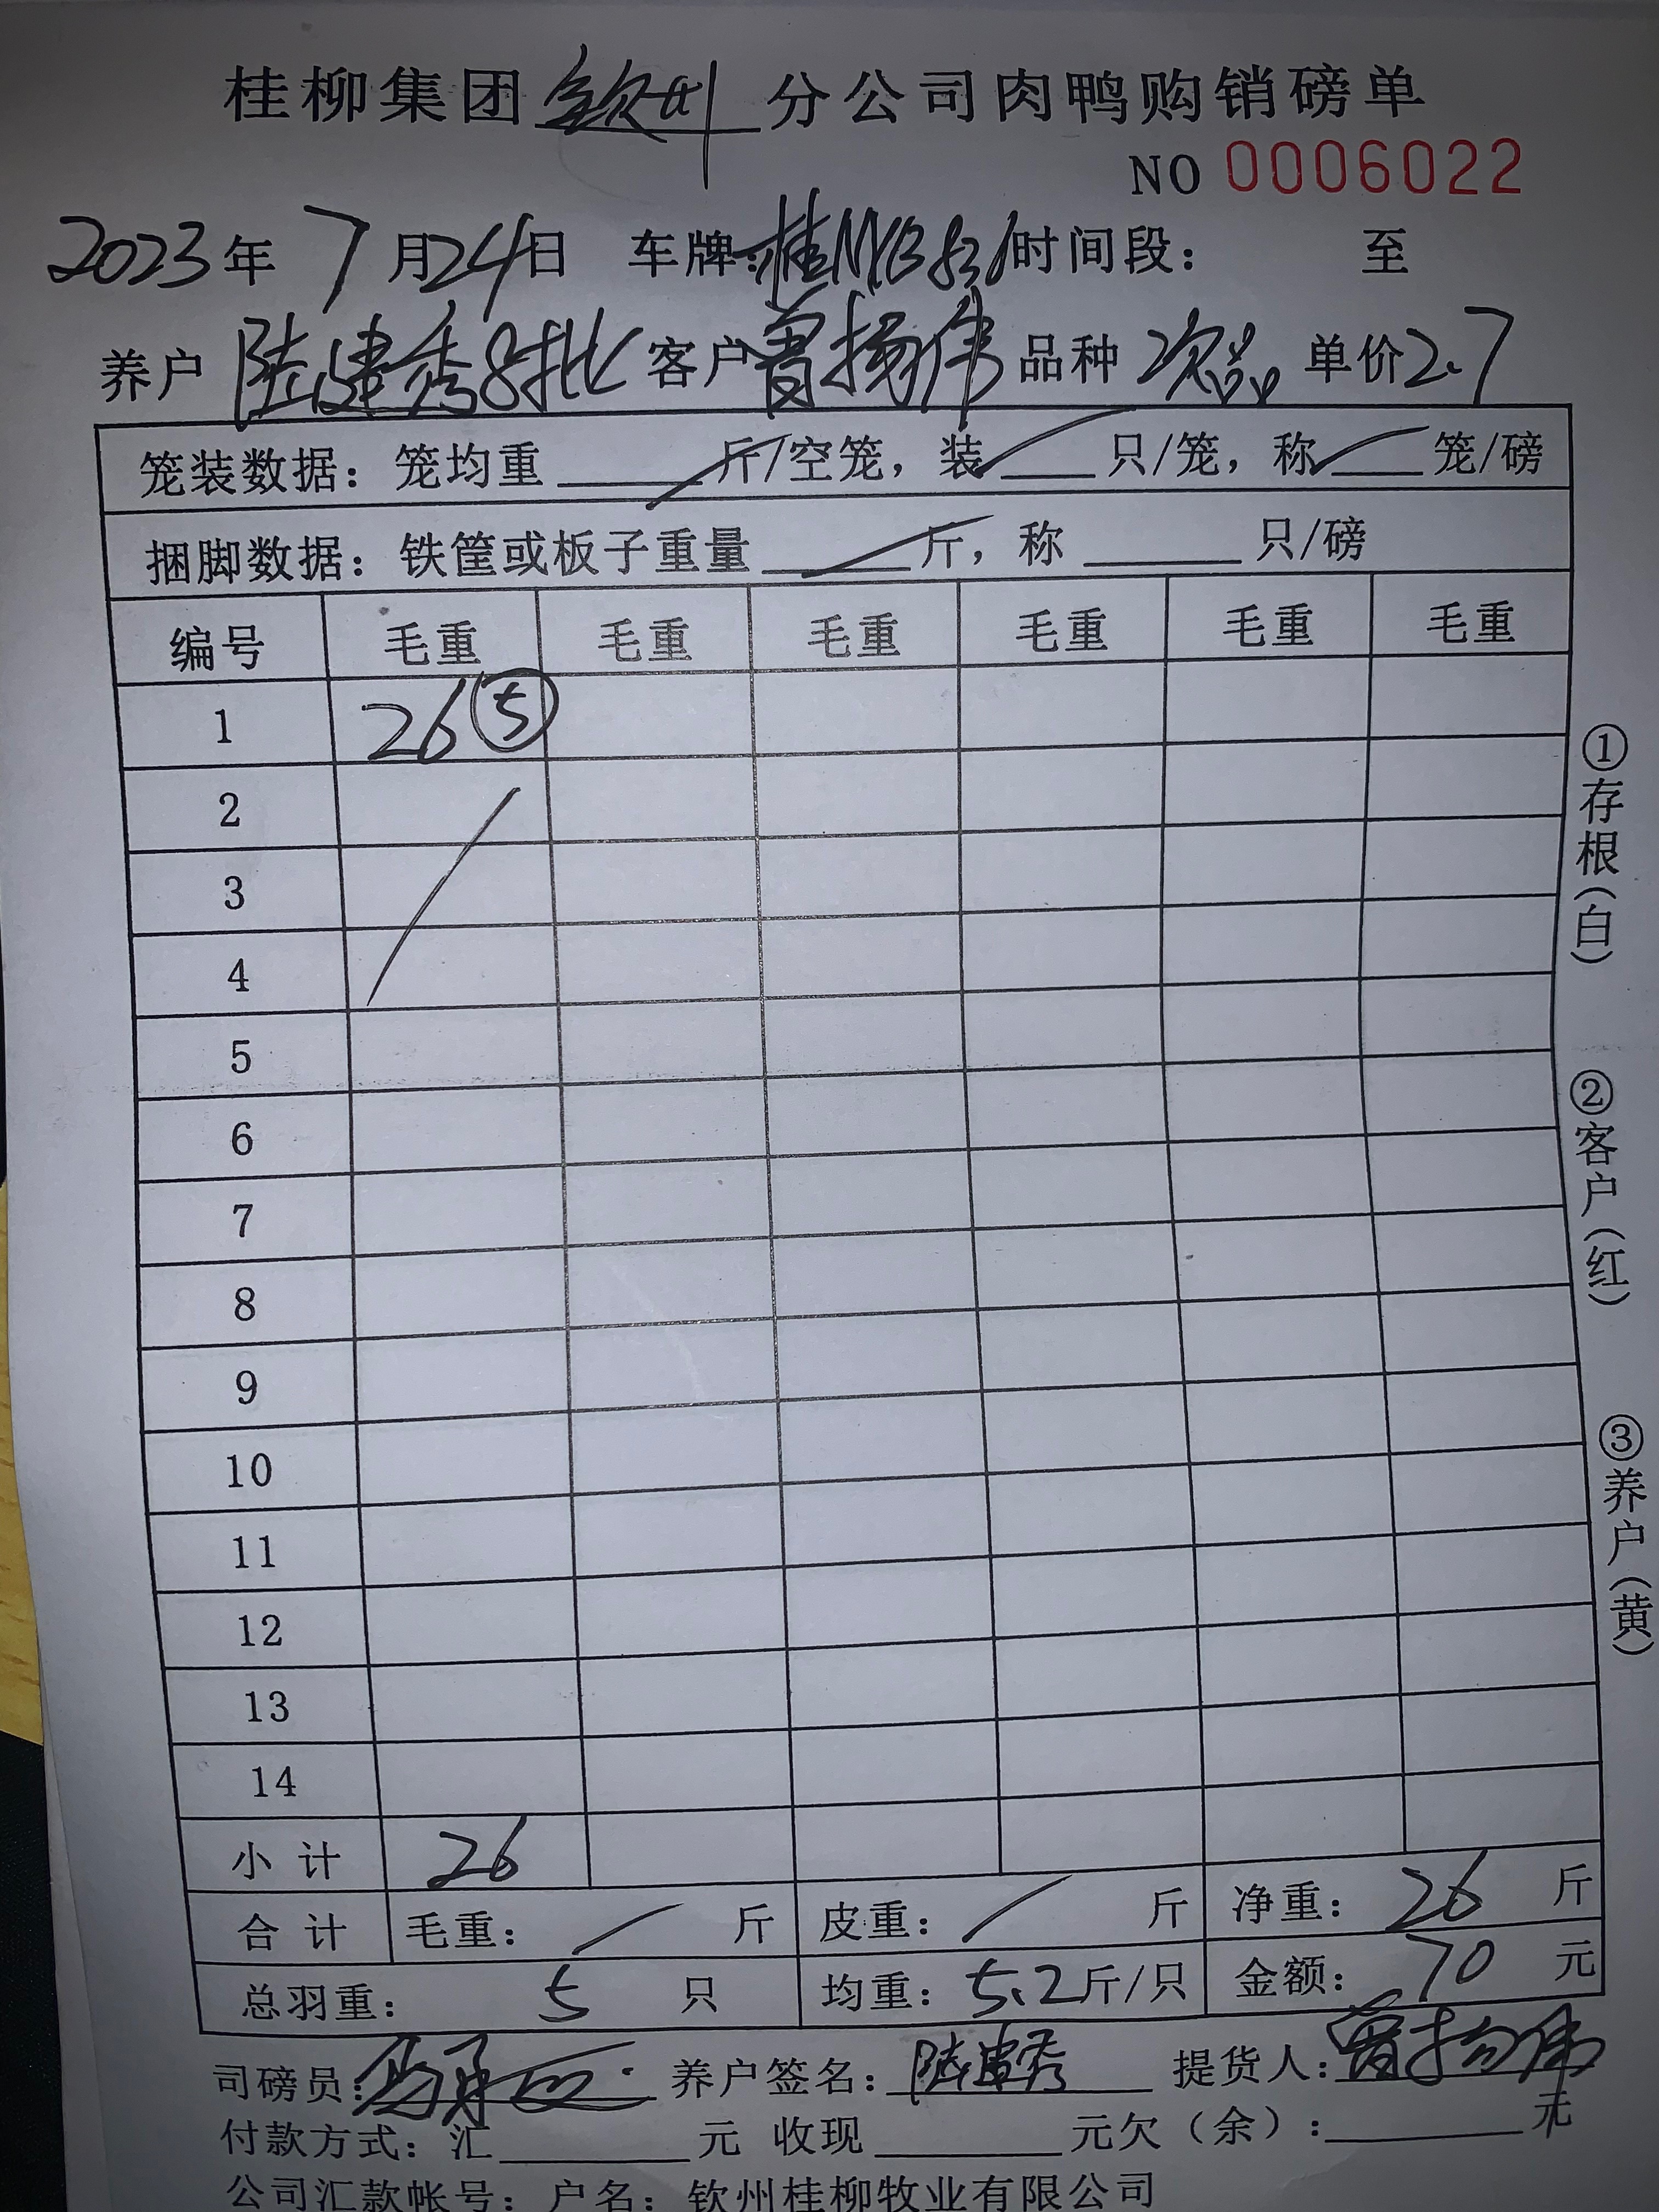 桂柳集团钦州分公司肉鸭购销磅单
NO 0006022
2023年7月24日 车牌: 时间段: 至
养户 陆建秀8批 客户曾扬伟 品种 次品 单价2.7
笼装数据: 笼均重 斤/空笼, 装 只/笼, 称 笼/磅
捆脚数据: 铁筐或板子重量 斤, 称 只/磅
编号 毛重 毛重 毛重 毛重 毛重 毛重
1 26 ⑤
2
3
4
5
6
7
8
9
10
11
12
13
14
小计 26
合计 毛重: 斤 皮重: 斤 净重: 26 斤
总羽重: 5 只 均重: 5.2斤/只 金额: 70 元
司磅员: 养户签名: 陆建秀 提货人: 曾扬伟
付款方式: 汇 元 收现 元欠(余): 元
公司汇款帐号: 户名: 钦州桂柳牧业有限公司
①存根(白)
②客户(红)
③养户(黄)